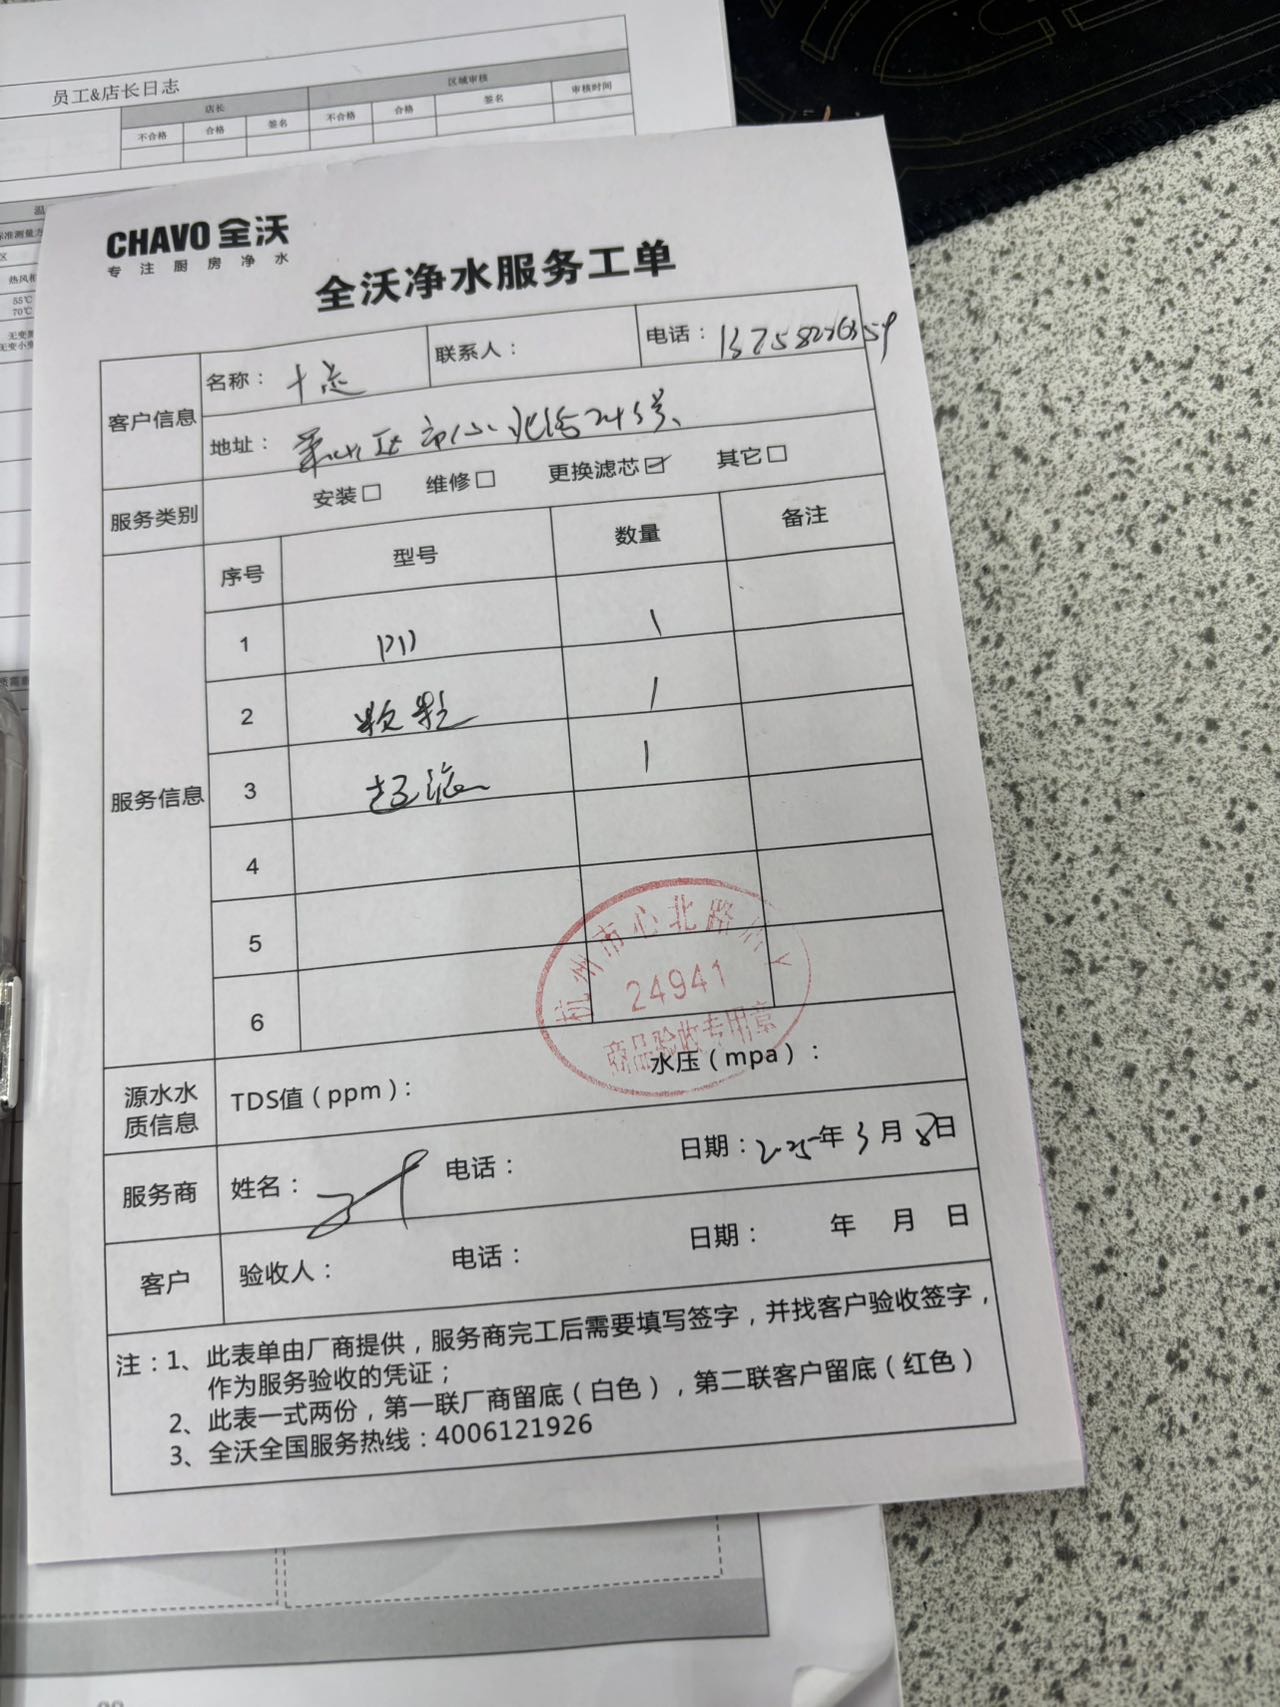 员工&店长日志
店长
区域审核
不合格 合格 签名 不合格 合格 签名 审核时间
热风柜
55℃
70℃
CHAVO 全沃
专注厨房净水
全沃净水服务工单
客户信息
名称：十足
联系人：
电话：
地址：
服务类别
安装□ 维修□ 更换滤芯☑ 其它□
服务信息
序号 型号 数量 备注
1 PP 1
2 颗粒 1
3 超滤 1
4
5
6
杭州市心北路店
24941
商品验收专用章
源水水质信息
TDS值（ppm）：
水压（mpa）：
服务商
姓名：
电话：
日期：2025年3月8日
客户
验收人：
电话：
日期： 年 月 日
注：1、此表单由厂商提供，服务商完工后需要填写签字，并找客户验收签字，
作为服务验收的凭证；
2、此表一式两份，第一联厂商留底（白色），第二联客户留底（红色）
3、全沃全国服务热线：4006121926